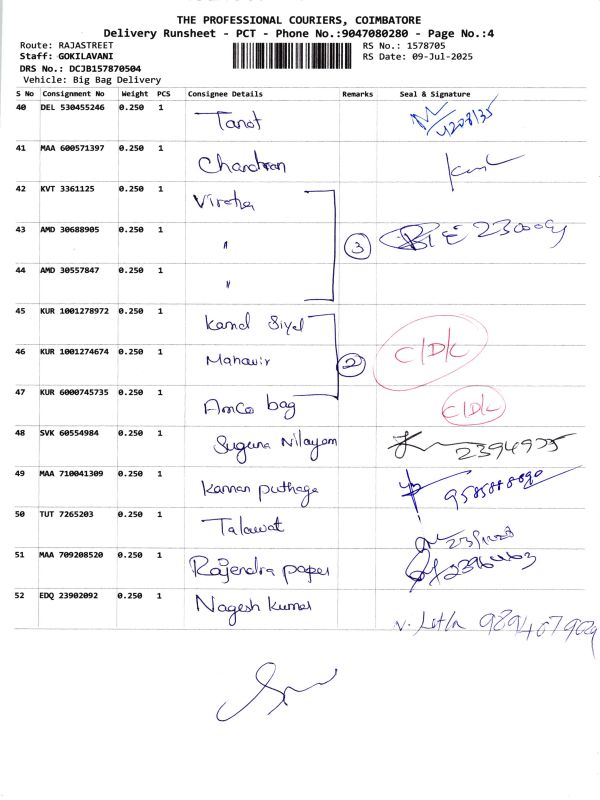 THE PROFESSIONAL COURIERS, COIMBATORE
Delivery Runsheet - PCT - Phone No.:9047080280 - Page No.:4
Route: RAJASTREET RS No.: 1578705
Staff: GOKILAVANI RS Date: 09-Jul-2025
DRS No.: DCJB157870504
Vehicle: Big Bag Delivery
S No Consignment No Weight PCS Consignee Details Remarks Seal & Signature
40 DEL 530455246 0.250 1 Tanot
41 MAA 600571397 0.250 1 Chandran
42 KVT 3361125 0.250 1
43 AMD 30688905 0.250 1 〃 3
44 AMD 30557847 0.250 1 〃
45 KUR 1001278972 0.250 1 Kamal
46 KUR 1001274674 0.250 1 Mahavir 2 C/D/C
47 KUR 6000745735 0.250 1 Amco bag C/D/C
48 SVK 60554984 0.250 1 Suguna Nilayam 2394935
49 MAA 710041309 0.250 1 Kannan puthaga
50 TUT 7265203 0.250 1 Talawat
51 MAA 709208520 0.250 1 Rajendra paper
52 EDQ 23902092 0.250 1 Nagesh kumar